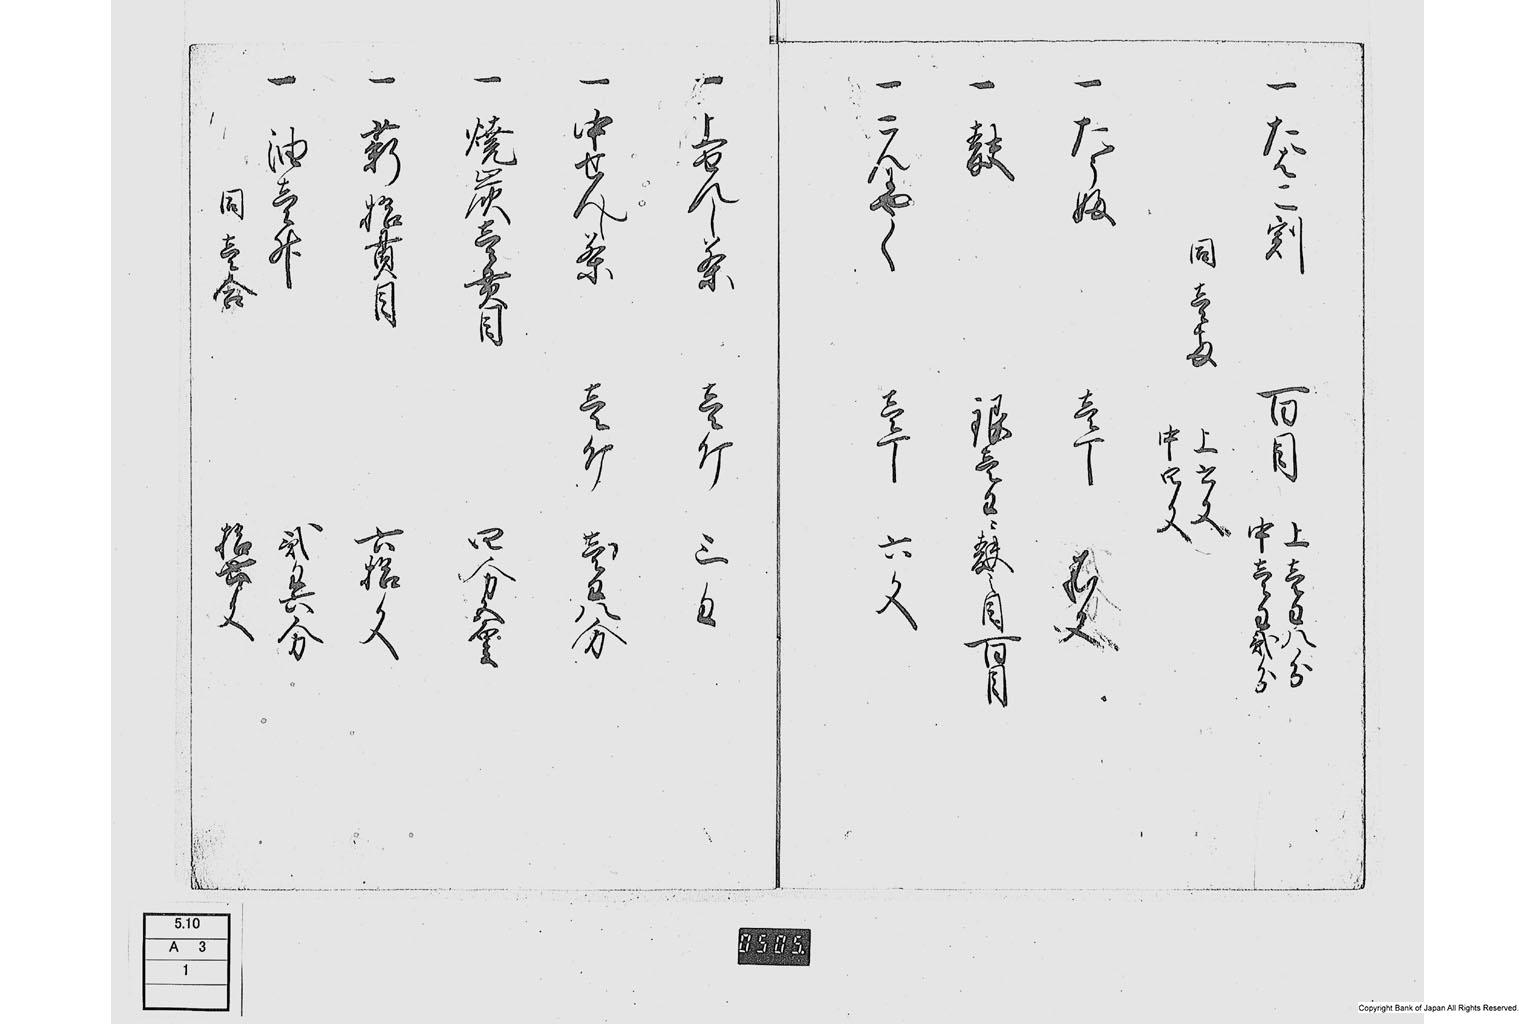 一 たはこ割 百目 上壱匁八分
中壱匁弐分
同壱玉 上六文
中四文
一 たうふ 壱丁 文
一 麩 銀壱匁ニ麩目百目
一 こんにやく 壱丁 六文
一 上せんし茶 壱斤 三匁
一 中せんし茶 壱斤 壱匁八分
一 焼炭壱貫目 四分五厘
一 薪拾貫目 六拾文
一 油壱升 弐匁六分
同壱合 拾文
5.10
A 3
1
0505.
Copyright Bank of Japan All Rights Reserved.